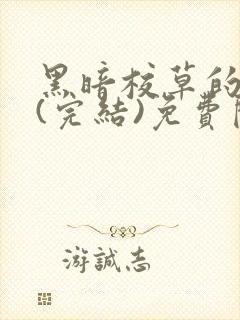 黑暗校草的
(完結)免費
游誠志